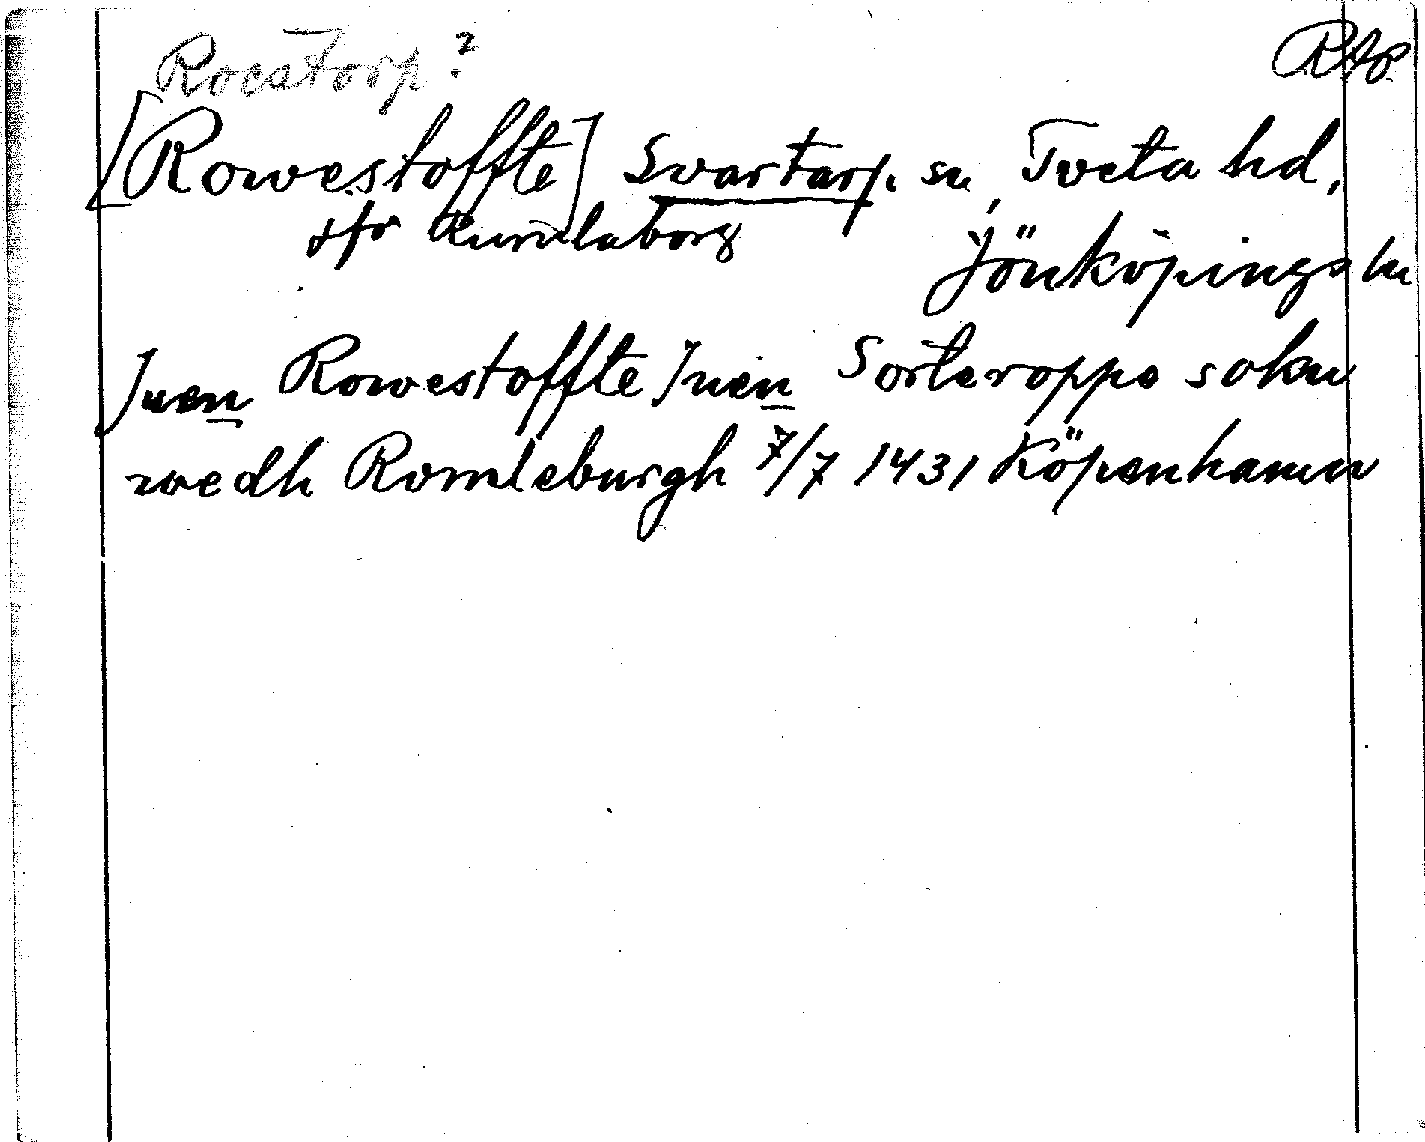 Rocatorp? RAp
[Rowestoffte] Svartarp. sn, Tveta hd,
sfr Rumlaborg
Jönköpings ln
Jnen Rowestoffte Jnen Sorteroppe sokn
wedh Romleburgh 7/7 1431 Köpenhamn